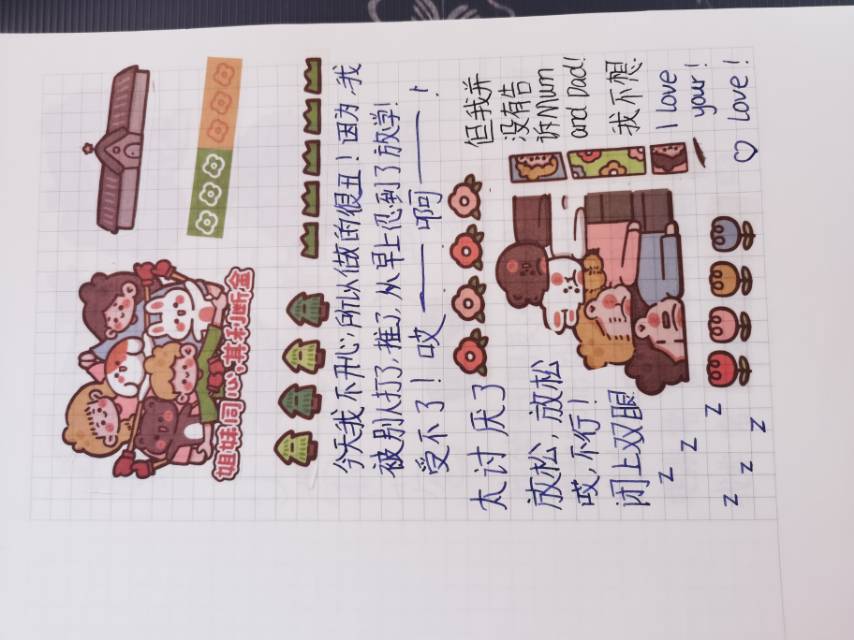 姐妹同心,其利断金
今天我不开心,所以做的很丑!因为,我
被别人打了,推了,从早上忍到了放学!
受不了!哎——啊——!
太讨厌了
放松,放松
哎,不行!
闭上双眼
z z z
z z z
但我并
没有告
诉Mum
and Dad!
我不想
I love
your!
♡ love!